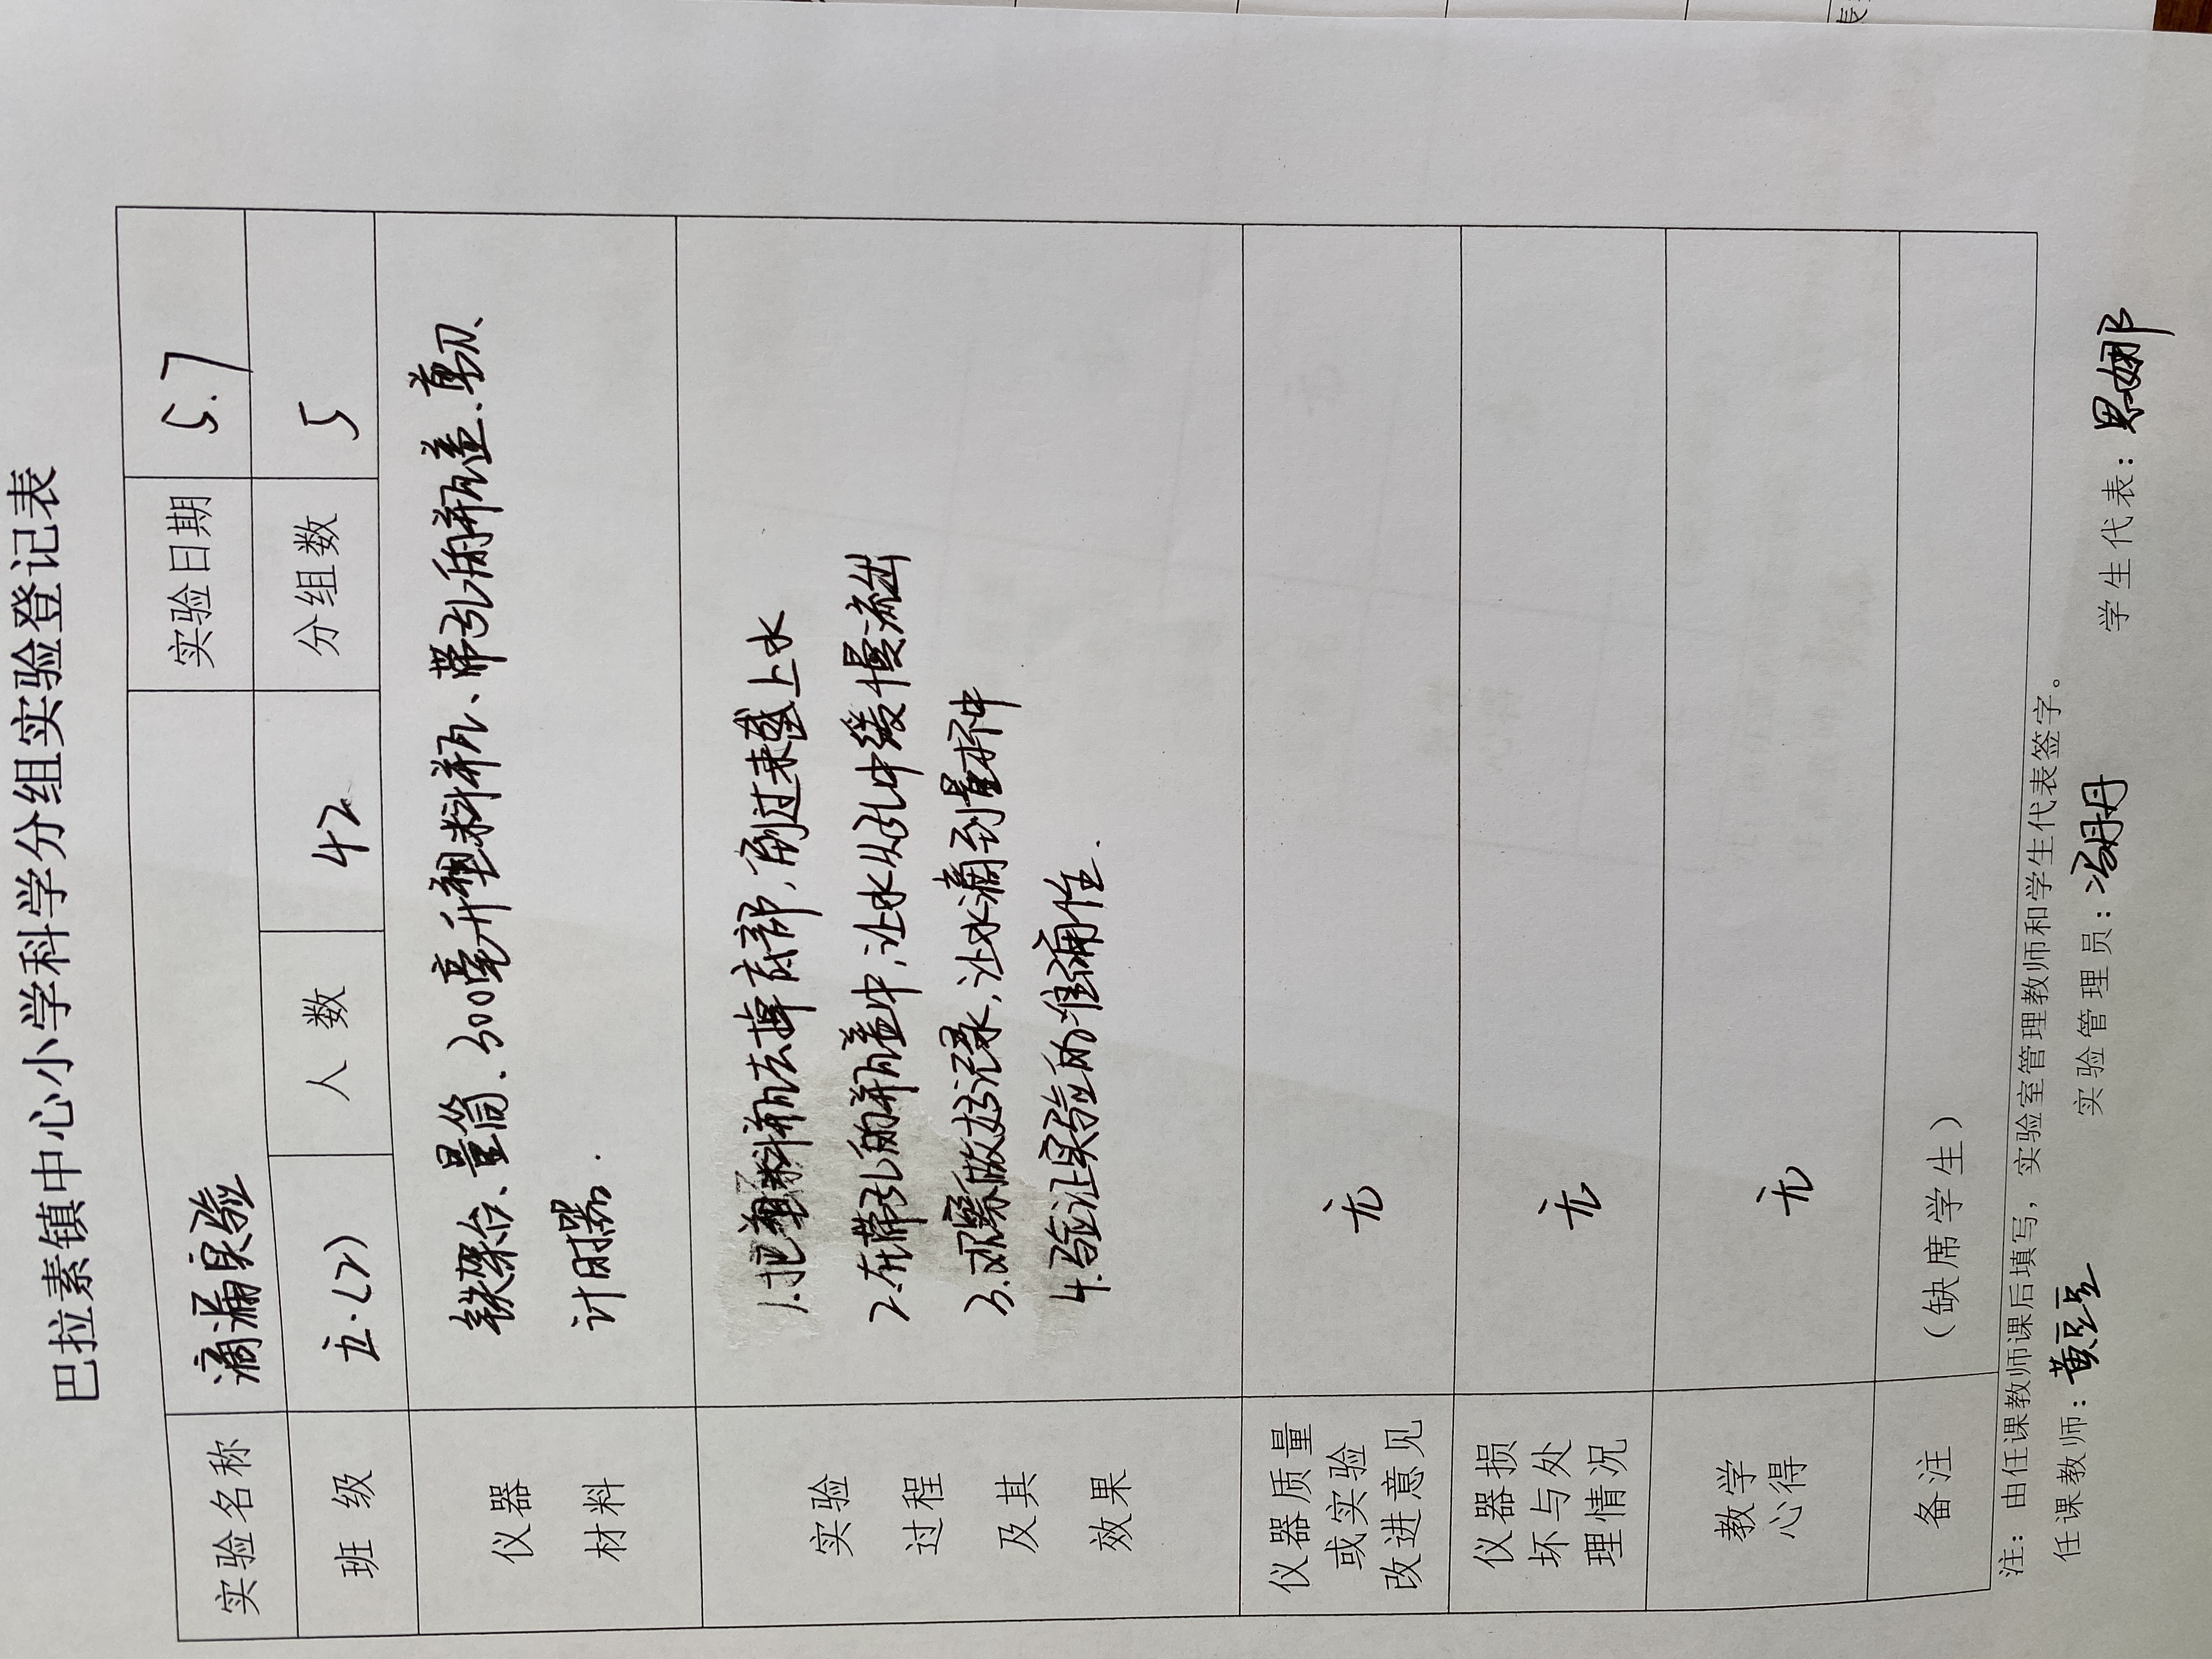 巴拉素镇中心小学科学分组实验登记表
实验名称 滴漏实验 实验日期 5.7
班 级 五.(2) 人 数 42 分组数 5
仪器 铁架台、量筒、300毫升塑料瓶、带孔的瓶盖、剪刀、
材料 计时器.
实验 1.把塑料瓶去掉底部,倒过来 上水
过程 2.在带孔的瓶盖中,让水从孔中缓慢流出
及其 3.观察做好记录,让水滴到量杯中
效果 4.验证实验的准确性.
仪器质量
或实验 无
改进意见
仪器损
坏与处 无
理情况
教学
心得 无
备注 (缺席学生)
注:由任课教师课后填写,实验室管理教师和学生代表签字。
任课教师:黄豆豆 实验管理员:冯丹丹 学生代表:思娜